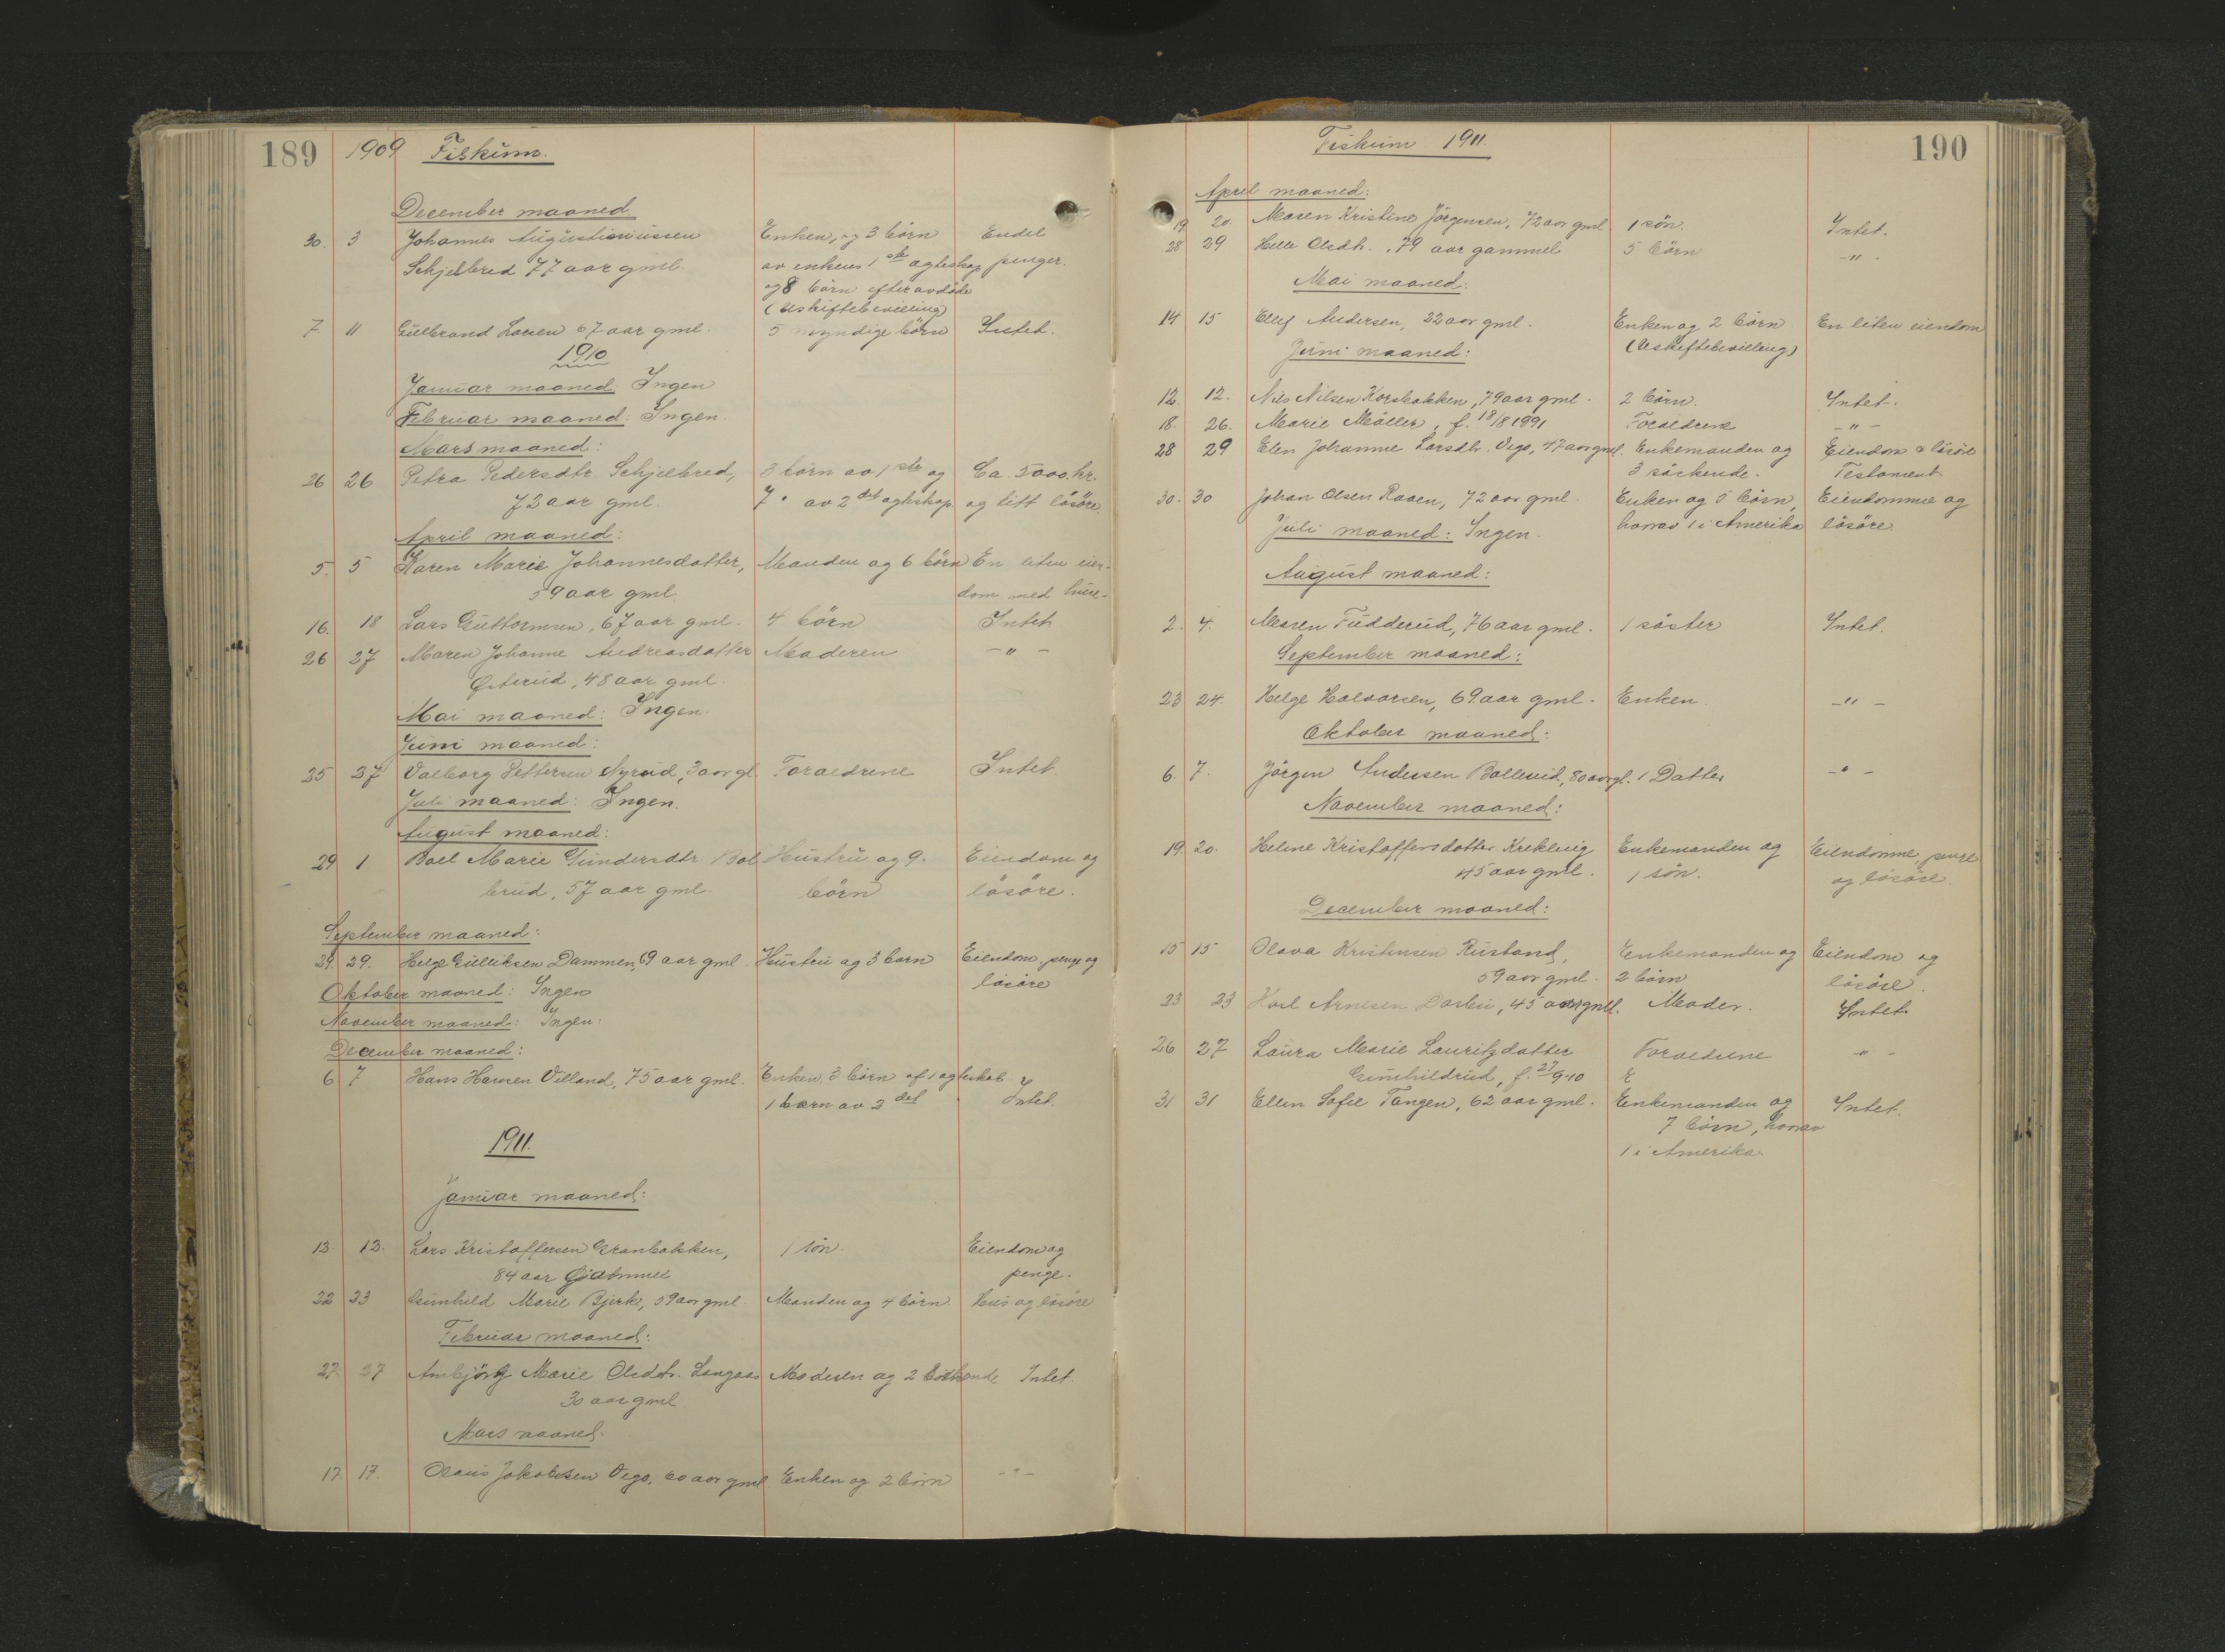 189 1909 Fiskum.
December maaned
30. 3 Johannes Augustinussen Enken, og 3 börn Endel
Schjelbred 77 aar gml. av enkens 1ste egteskap penger.
og 8 börn efter avdöde
(Uskiftebevilling)
7 11 Gulbrand Loven 67 aar gml. 5 myndige börn Intet.
1910
Januar maaned: Ingen
Februar maaned: Ingen.
Mars maaned:
26 26 Petra Pedersdtr. Schjelbred, 3 börn av 1ste og Ca. 5000 kr.
72 aar gml. 7 " av 2det egteskap. og litt lösöre.
April maaned:
5. 5 Karen Marie Johannesdatter, Manden og 6 börn En liten eien-
59 aar gml. dom med huse-
16. 18 Lars Guttormsen, 67 aar gml. 4 börn Intet
26 27 Maren Johanne Andreasdatter Moderen - " -
Østerud, 48 aar gml.
Mai maaned: Ingen.
Juni maaned:
25 27 Valborg Pettersen Nyrud, 3 aar gl Foraeldrene Intet.
Juli maaned: Ingen.
August maaned:
29 1 Boel Marie Gundersdtr. Bol Hustru og 9. Eiendom og
brud, 57 aar gml. börn lösöre.
September maaned:
29. 29. Helge Gulliksen Dammen, 69 aar gml. Hustru og 3 barn Eiendom, penge og
lösöre
Oktober maaned: Ingen
November maaned: Ingen.
December maaned:
6 7 Hans Hansen Villand, 75 aar gml. Enken, 3 börn af 1 egteskab
1 barn av 2det Intet.
1911.
Januar maaned:
12. 12. Lars Kristoffersen Granbakken, 1 sön. Eiendom og
84 aar Gammel penge.
22 23 Gunhild Marie Bjerke, 59 aar gml. Manden og 4 börn Hus og lösöre
Februar maaned:
27 27 Ambjörg Marie Olsdtr. Langaas Moderen og 2 söskende Intet.
30 aar gml.
Mars maaned.
17. 17. Olaus Jakobsen Vego, 60 aar gml. Enken og 2 börn - " -
Fiskum 1911. 190
April maaned:
19 20. Maren Kristine Jörgensen, 72 aar gml 1 sön. Intet.
28 29 Helle Olsdtr. 79 aar gammel 5 börn - " -
Mai maaned:
14 15 Ellef Andersen, 22 aar gml. Enken og 2 börn En liten eiendom
(Uskiftebevilling)
Juni maaned:
12. 12. Nils Nilsen Korsbakken, 79 aar gml. 2 börn. Intet.
18. 26. Marie Möller, f. 18/8 1891 Foraeldrene - " -
28 29 Elen Johanne Larsdtr. Vego, 47 aar gml. Enkemanden og Eiendom & lösöre
3 söskende. Testament
30. 30 Johan Olsen Raaen, 72 aar gml. Enken og 5 börn, Eiendomme og
hvorav 1 i Amerika lösöre
Juli maaned: Ingen.
August maaned:
2. 4. Maren Fudderud, 76 aar gml. 1 söster Intet.
September maaned:
23 24. Helge Halvorsen, 69 aar gml. Enken. - " -
Oktober maaned:
6. 7. Jörgen Andersen Bollerud, 80 aar gl. 1 Datter - " -
November maaned:
19. 20. Helene Kristoffersdatter Krekling Enkemanden og Eiendomme, penge
45 aar gml. 1 sön. og lösöre.
December maaned:
15 15 Olava Kristensen Rustand, Enkemanden og Eiendom og
59 aar gml. 2 börn lösöre.
23 23 Karl Arnesen Darbu, 45 aar gml. Moder. Intet
26 27 Laura Marie Lauritzdatter Foraeldrene - " -
Gunhildrud, f. 27/9-10
31 31 Ellen Sofie Tangen, 62 aar gml. Enkemanden og Intet.
7 börn, hvorav
1 i Amerika.